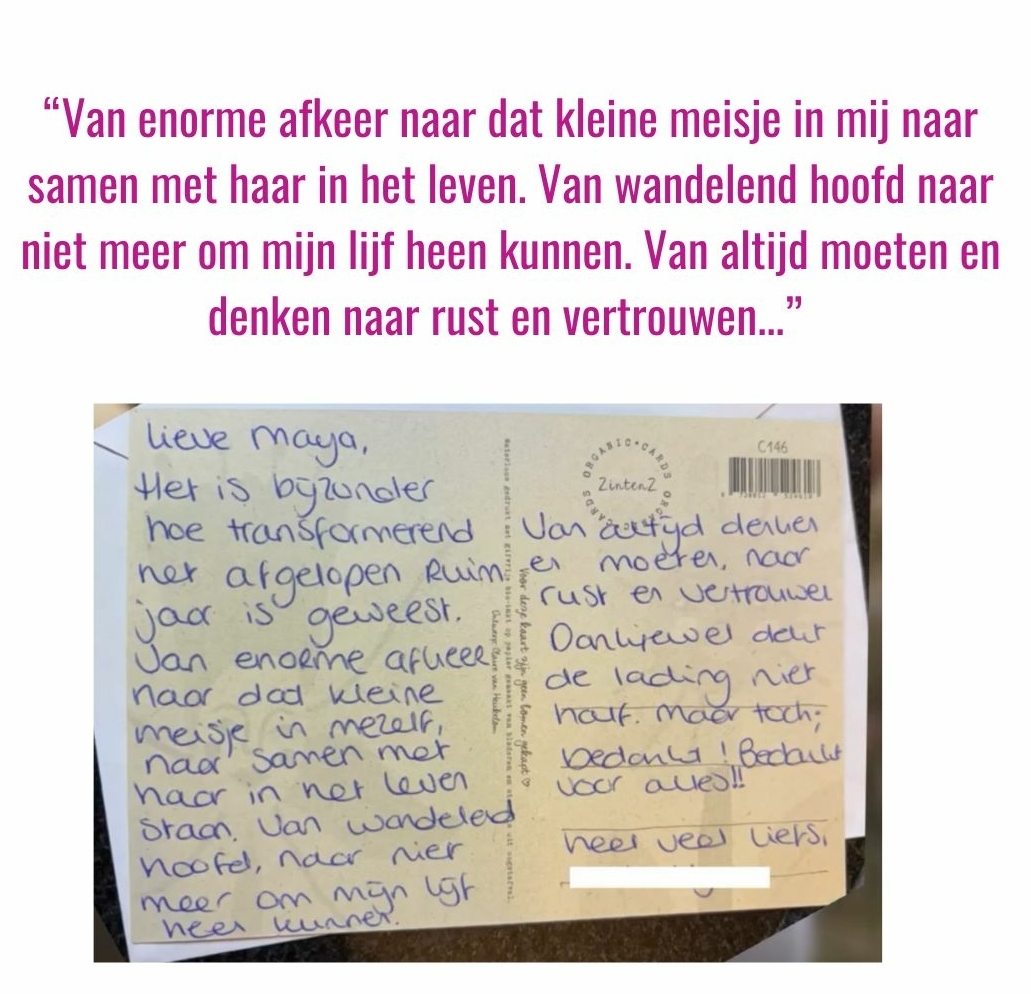 “Van enorme afkeer naar dat kleine meisje in mij naar
samen met haar in het leven. Van wandelend hoofd naar
niet meer om mijn lijf heen kunnen. Van altijd moeten en
denken naar rust en vertrouwen...”
Lieve Maya,
Het is bijzonder
hoe transformerend
het afgelopen Ruim
jaar is geweest.
Van enorme afkeer
naar dad kleine
meisje in mezelf,
naar samen met
haar in het leven
staan. Van wandelend
hoofd, naar niet
meer om mijn lijf
heen kunnen.
Voor deze kaart zijn geen bomen gekapt ♡
ORGANIC • CARDS
ZintenZ
C146
Van altijd denken
en moeten, naar
rust en vertrouwen
Dankjewel dekt
de lading niet
half. Maar toch;
bedankt! Bedankt
voor alles!!
heel veel liefs,